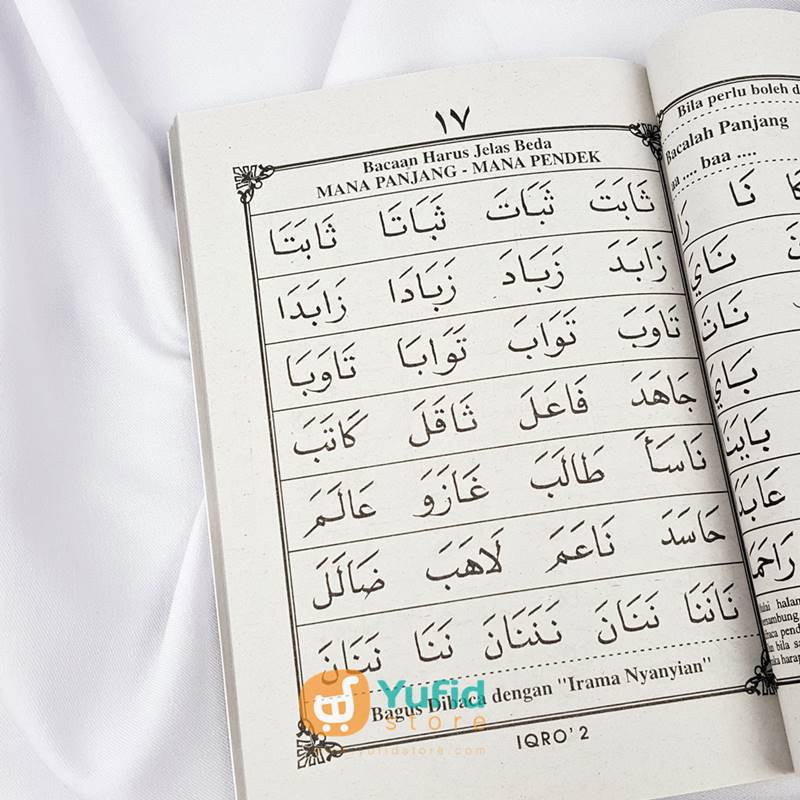 ١٧
Bacaan Harus Jelas Beda
MANA PANJANG - MANA PENDEK
ثَابَتَ ثَبَاتَ ثَبَاتَا ثَابَتَا
زَابَدَ زَبَادَ زَبَادَا زَابَدَا
تَاوَبَ تَوَابَ تَوَابَا تَاوَبَا
جَاهَدَ فَاعَلَ ثَاقَلَ كَاتَبَ
نَاسَأَ طَالَبَ غَازَوَ عَالَمَ
حَاسَدَ نَاعَمَ لَاهَبَ ضَالَلَ
نَانَنَا نَنَانَ نَنَنَانَ نَنَا نَنَنَانَ
Bagus Dibaca dengan "Irama Nyanyian"
IQRO' 2
Bila perlu boleh d
Bacalah Panjang
baa ....
نَا
نَايَ
نَاتَ
بَايَ
عَابَدَ
Yufid
store
yufidstore.com